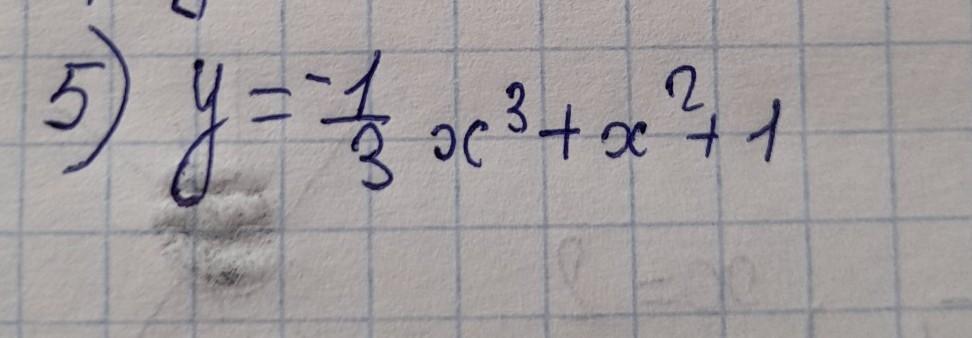 5) y = -1/3 x³ + x² + 1